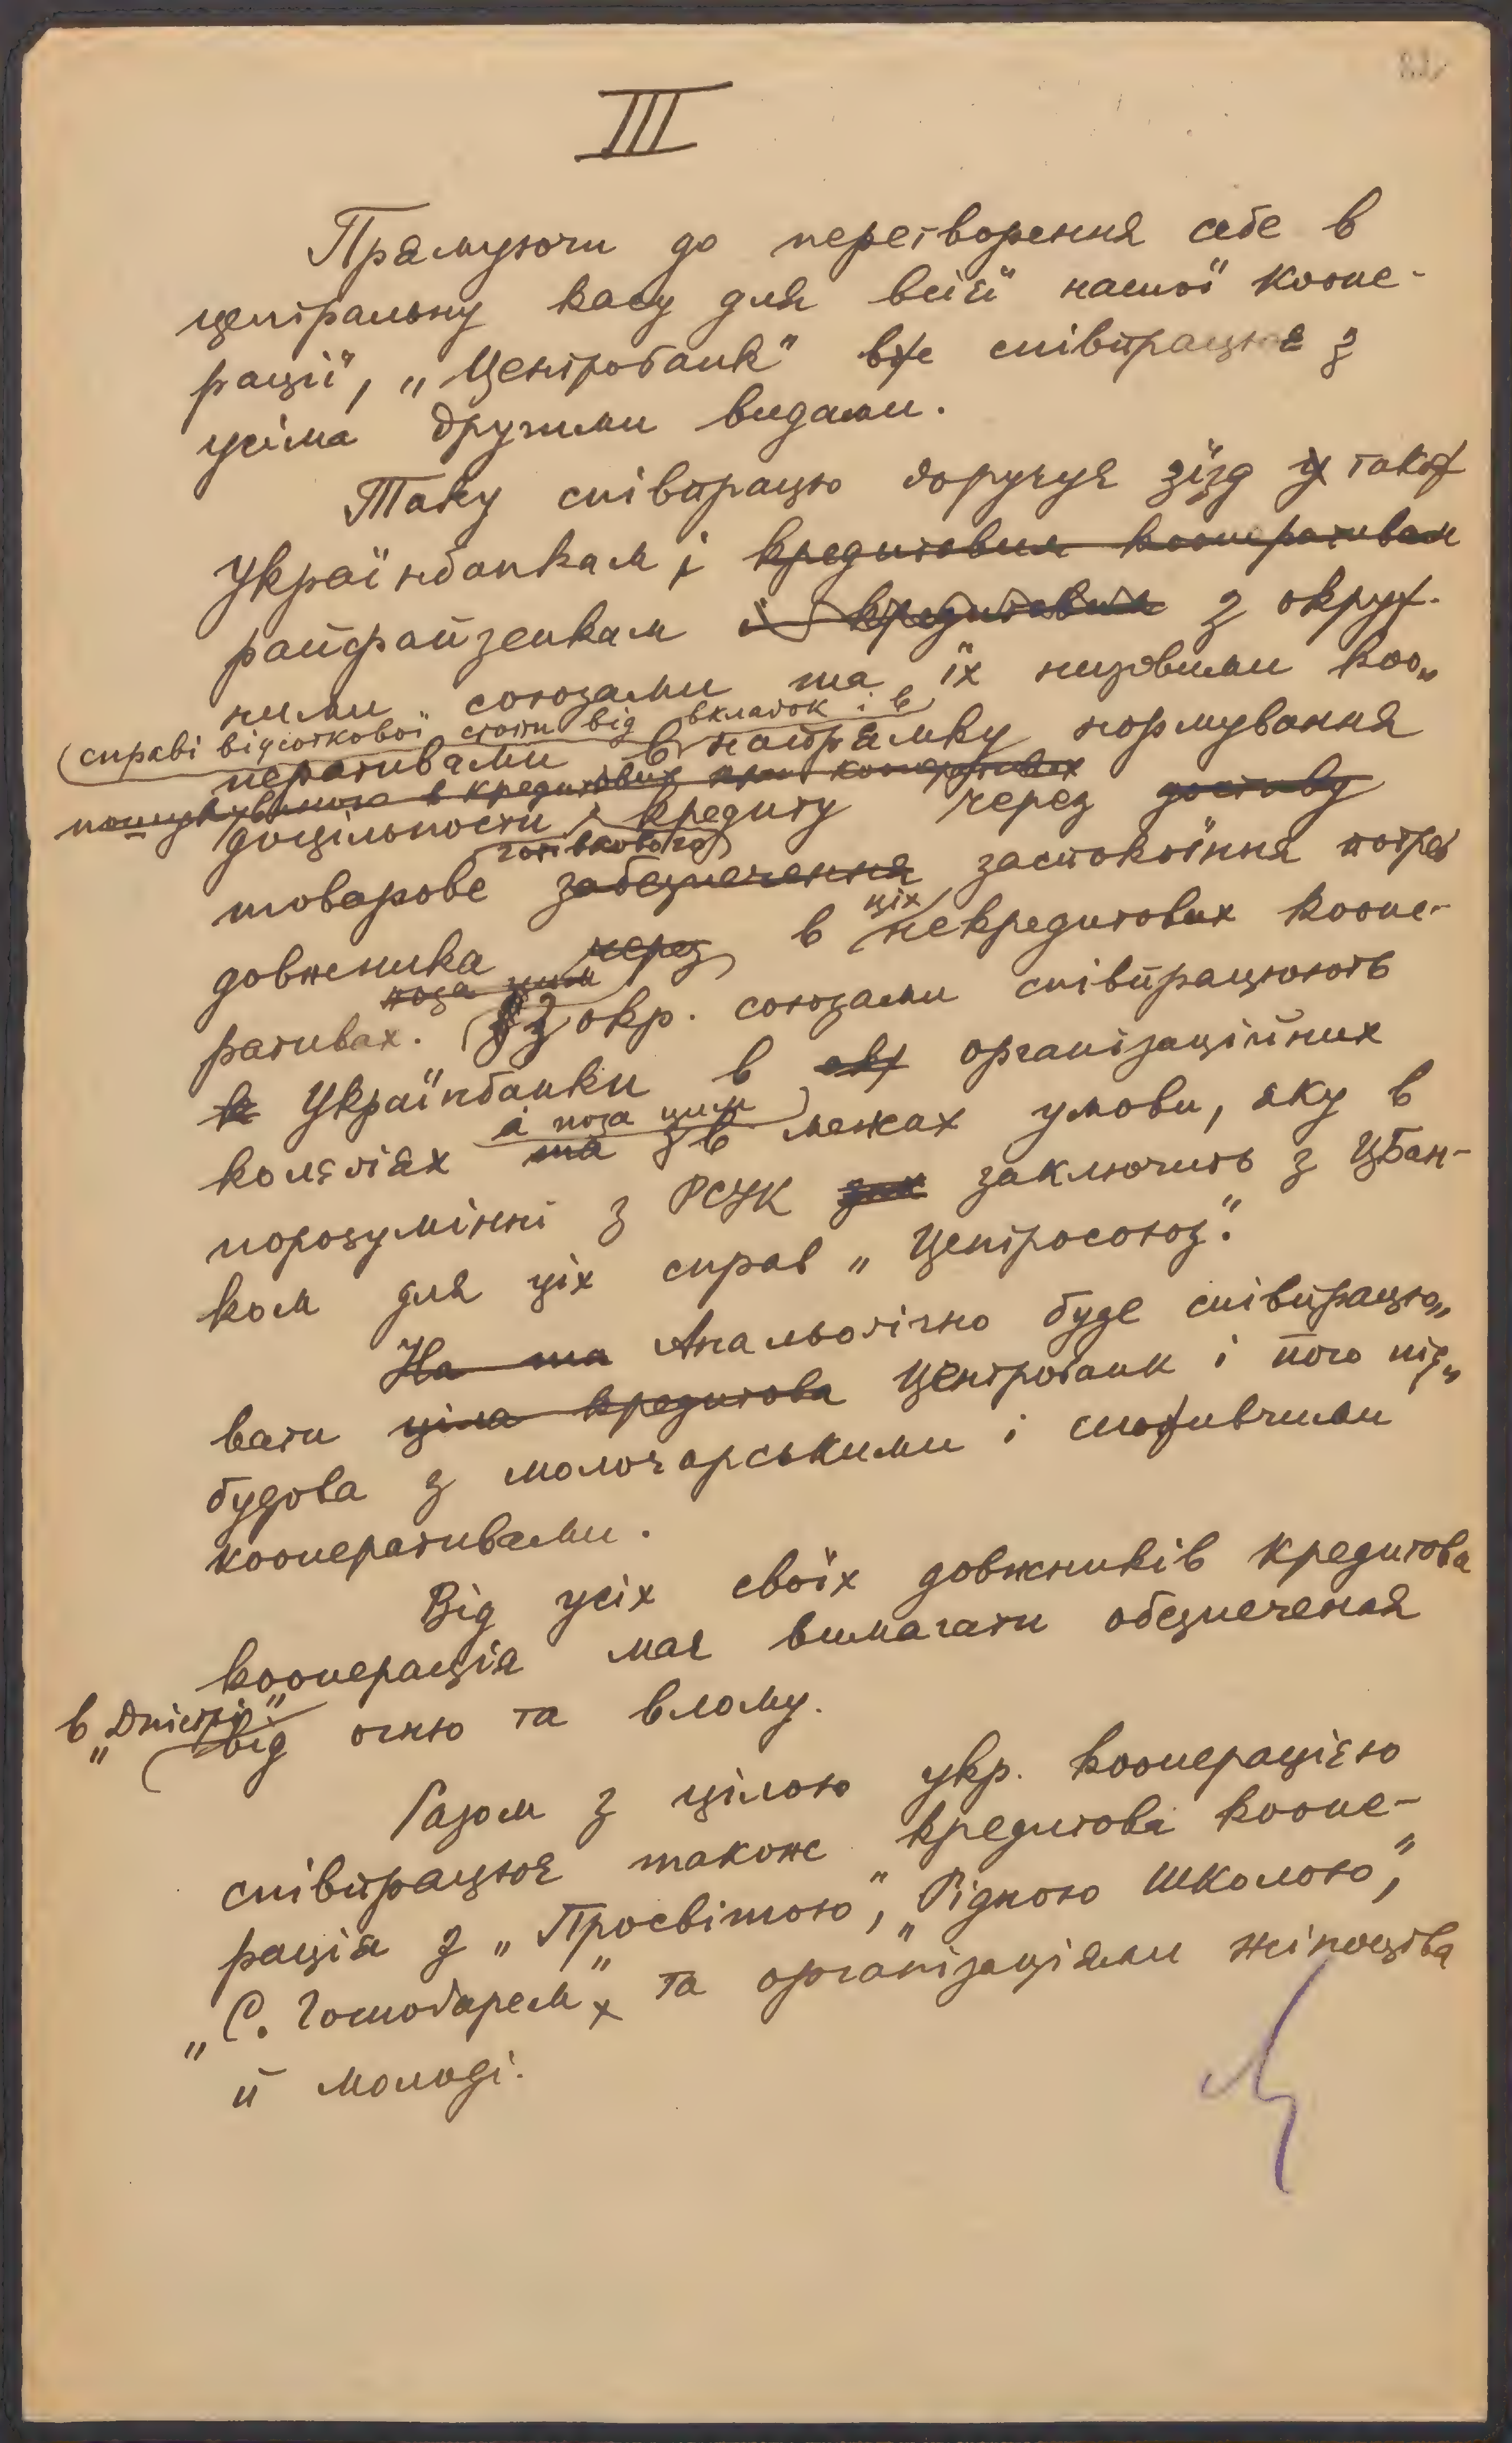 III
Прямуючи до перетворення себе в
центральну касу для всієї нашої коопе-
рації, „Центробанк" вже співпрацює з
усіма другими видами.
Таку співпрацю доручує зїзд й також
Українбанкам і кредитовим кооперативам
райфайзенкам і кредитовим з окруж-
ними союзами та їх низовими коо„
справі відсоткової стопи від вкладок і в
перативами в напрямку нормування
в кредитових кооперативах
доцільности кредиту через доставу
готівкового
товарове забезпечення застокоїння потреб
цїх
довжника через в некредитових коопе-
поза цим
ративах. З окр. союзами співпрацюють
Українбанки в організаційних
а поза цим
колєґіях та в межах умови, яку в
порозумінні з РСУК зак заключить з ЦБан-
ком для ціх справ „Центросоюз".
На та Анальоґічно буде співпрацю„
вати ціла кредитова Центробанк і його під„
будова з молочарськими і споживчими
кооперативами.
Від усіх своїх довжників кредитова
кооперація має вимагати обезпечення
в „Дністрі"
від огню та влому.
Разом з цілою укр. кооперацією
співпрацює також кредитова коопе-
рація з „Просвітою", „Рідною Школою",
„С. Господарем" та орґанізаціями жіноцтва
й молоді.